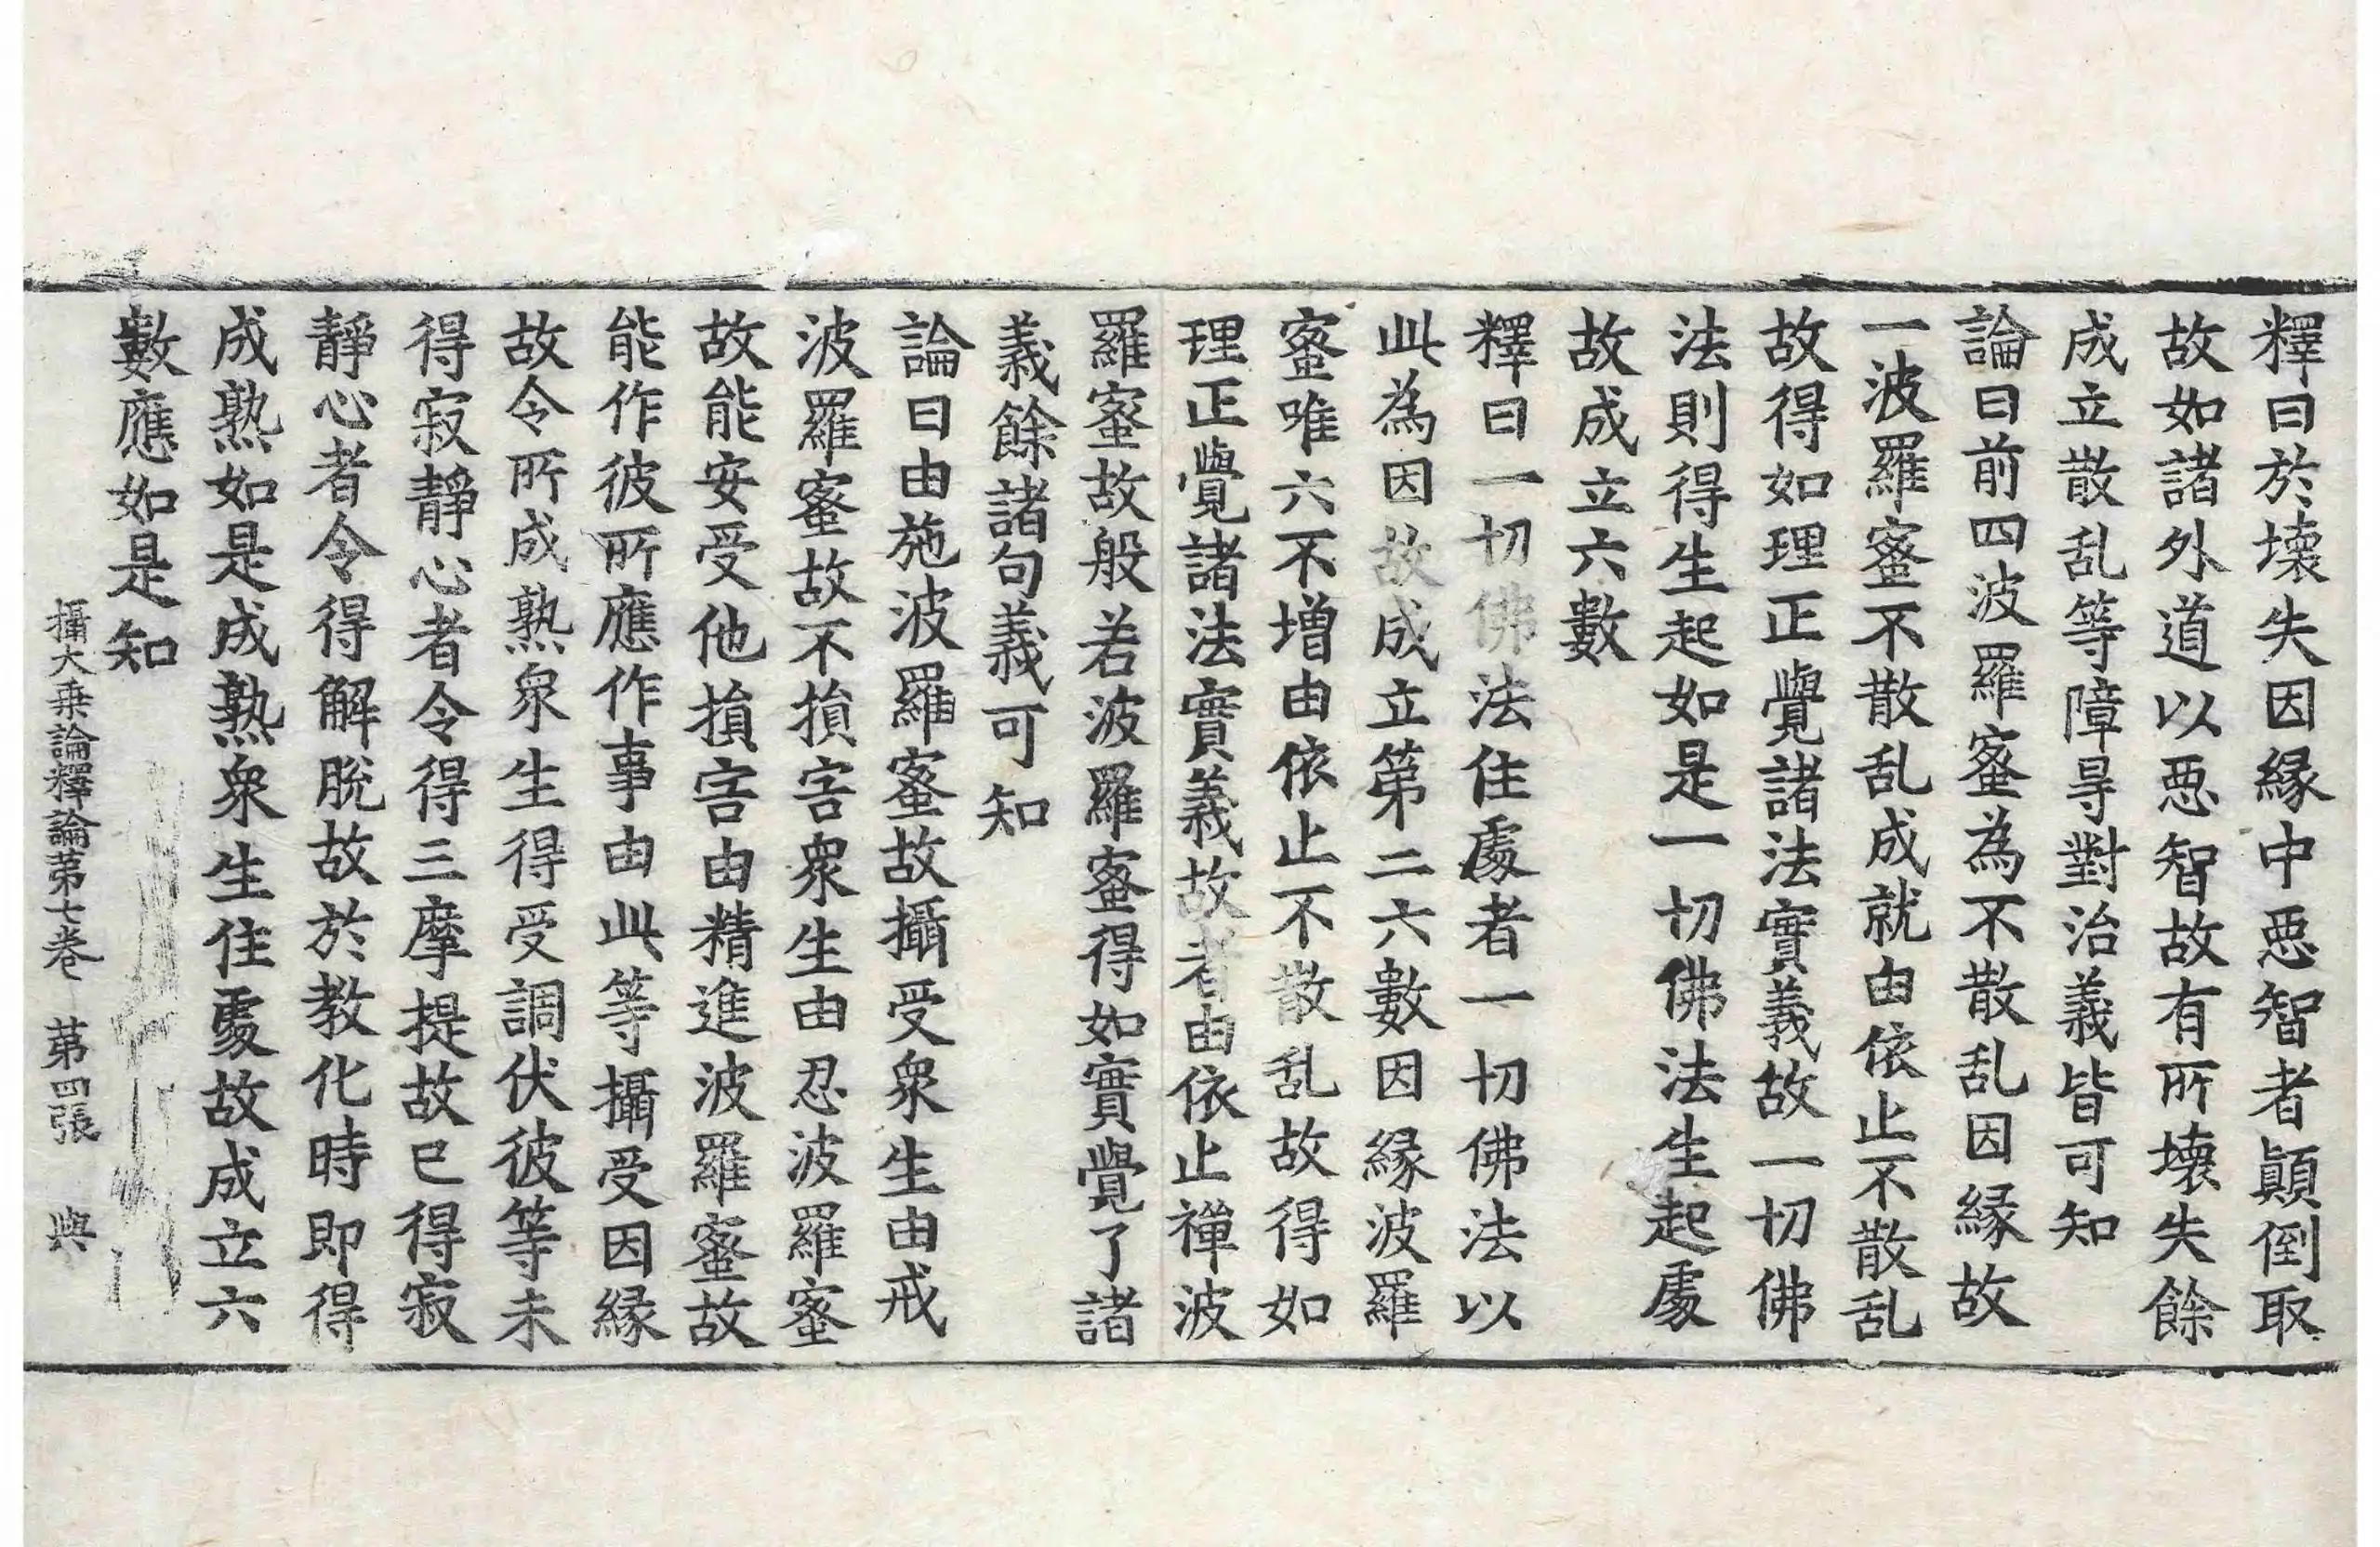 釋曰於壞失因緣中惡智者顚倒取
故如諸外道以惡智故有所壞失餘
成立散乱等障㝵對治義皆可知
論曰前四波羅蜜為不散乱因緣故
一波羅蜜不散乱成就由依止不散乱
故得如理正覺諸法實義故一切佛
法則得生起如是一切佛法生起處
故成立六數
釋曰一切佛法住處者一切佛法以
此為因故成立第二六數因緣波羅
蜜唯六不增由依止不散乱故得如
理正覺諸法實義故者由依止禪波
羅蜜故般若波羅蜜得如實覺了諸
義餘諸句義可知
論曰由施波羅蜜故攝受衆生由戒
波羅蜜故不損害衆生由忍波羅蜜
故能安受他損害由精進波羅蜜故
能作彼所應作事由此等攝受因緣
故令所成熟衆生得受調伏彼等未
得寂靜心者令得三摩提故已得寂
靜心者令得解脫故於教化時即得
成熟如是成熟衆生住處故成立六
數應如是知
攝大乗論釋論第七卷 第四張 與